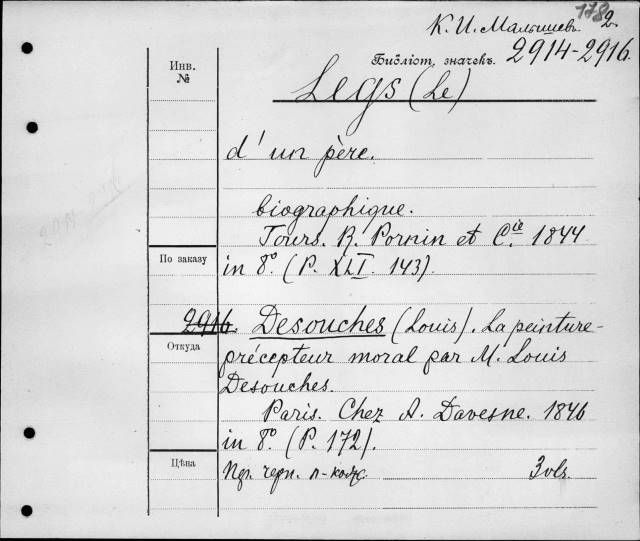 178 2
К. И. Малышевъ
Библіот. значекъ. 2914-2916.
Инв.
№
Legs (Le)
d'un père.
biographique.
Tours. R. Pornin et Cie. 1844
По заказу
in 8º. (P. XLI. 143).
2916. Desouches (Louis). La peinture-
Откуда
précepteur moral par M. Louis
Desouches.
Paris. Chez A. Davesne. 1846
in 8º. (P. 172).
Цѣна
Пер. черн. п-кож. 3 vls.